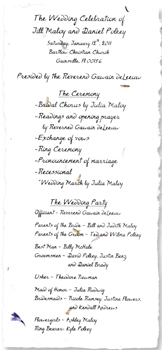 The Wedding Celebration of
Jill Maloy and Daniel Polkey
Saturday, January 15th, 2011
Barlow Christian Church
Presided by the Reverend Gawain deLeeuw
The Ceremony
-Bridal Chorus by Julia Maloy
-Readings and opening prayer
by Reverend Gawain deLeeuw
-Exchange of vows
-Ring Ceremony
-Pronouncement of marriage
-Recessional
"Wedding March by Julia Maloy
The Wedding Party
Officiant - Reverend Gawain deLeeuw
Parents of the Bride - Bill and Judith Maloy
Parents of the Groom - Ted and Wilma Polkey
Best Man - Billy McHale
Groomsmen - David Polkey, Justin Benz
and Daniel Brady
Usher - Theodore Newman
Maid of Honor - Julia Maloy
Bridesmaids - Nicole Ranney, Justine Flowers,
and Kendall Andrews
Flowergirl - Ashley Maloy
Ring Bearer - Kyle Polkey